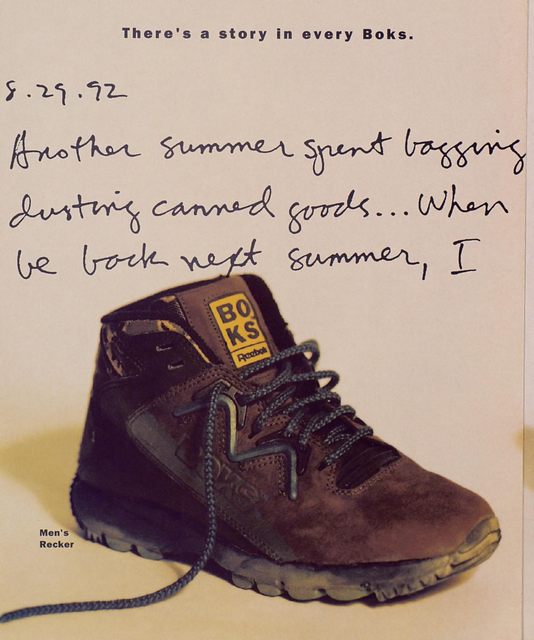 There's a story in every Boks.
8.29.92
Another summer spent bagging
dusting canned goods... When
be back next summer, I
BO
KS
Reebok
Men's
Recker